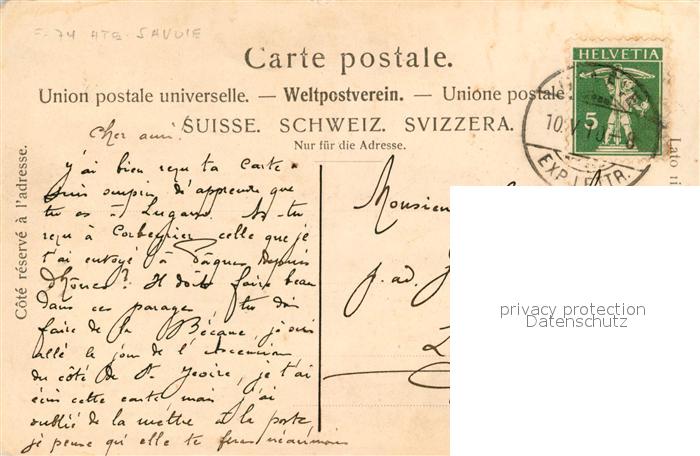 F-74 HTE-SAVOIE
Carte postale.
Union postale universelle. — Weltpostverein. — Unione postale
SUISSE. SCHWEIZ. SVIZZERA.
Nur für die Adresse.
HELVETIA
5
10.V.10.-8
EXP. LETTR.
Côté réservé à l'adresse.
Lato ri
Cher ami!
j'ai bien reçu ta carte
suis surpris d'apprendre que
tu es à Lugano. As-tu
reçu à Corbeyrier celle que je
t'ai envoyé à Pâques depuis
Il doit faire beau
dans ces parages, tu dois
faire de la Bécane, j'ai
allé le jour de l'Ascension
du côté de St. Jeoire, je t'ai
écris cette carte mais j'ai
oublié de la mettre à la poste
je pense qu'elle te fera néanmoins
Monsieu
privacy protection
Datenschutz